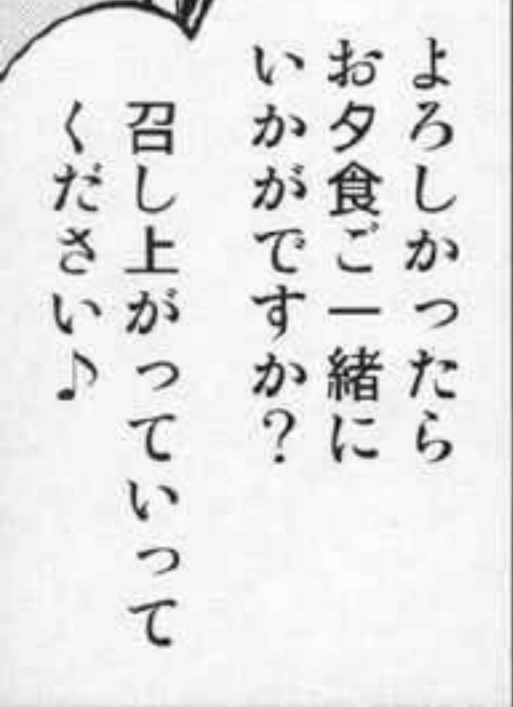 よろしかったら
お夕食ご一緒に
いかがですか?
召し上がっていって
ください♪